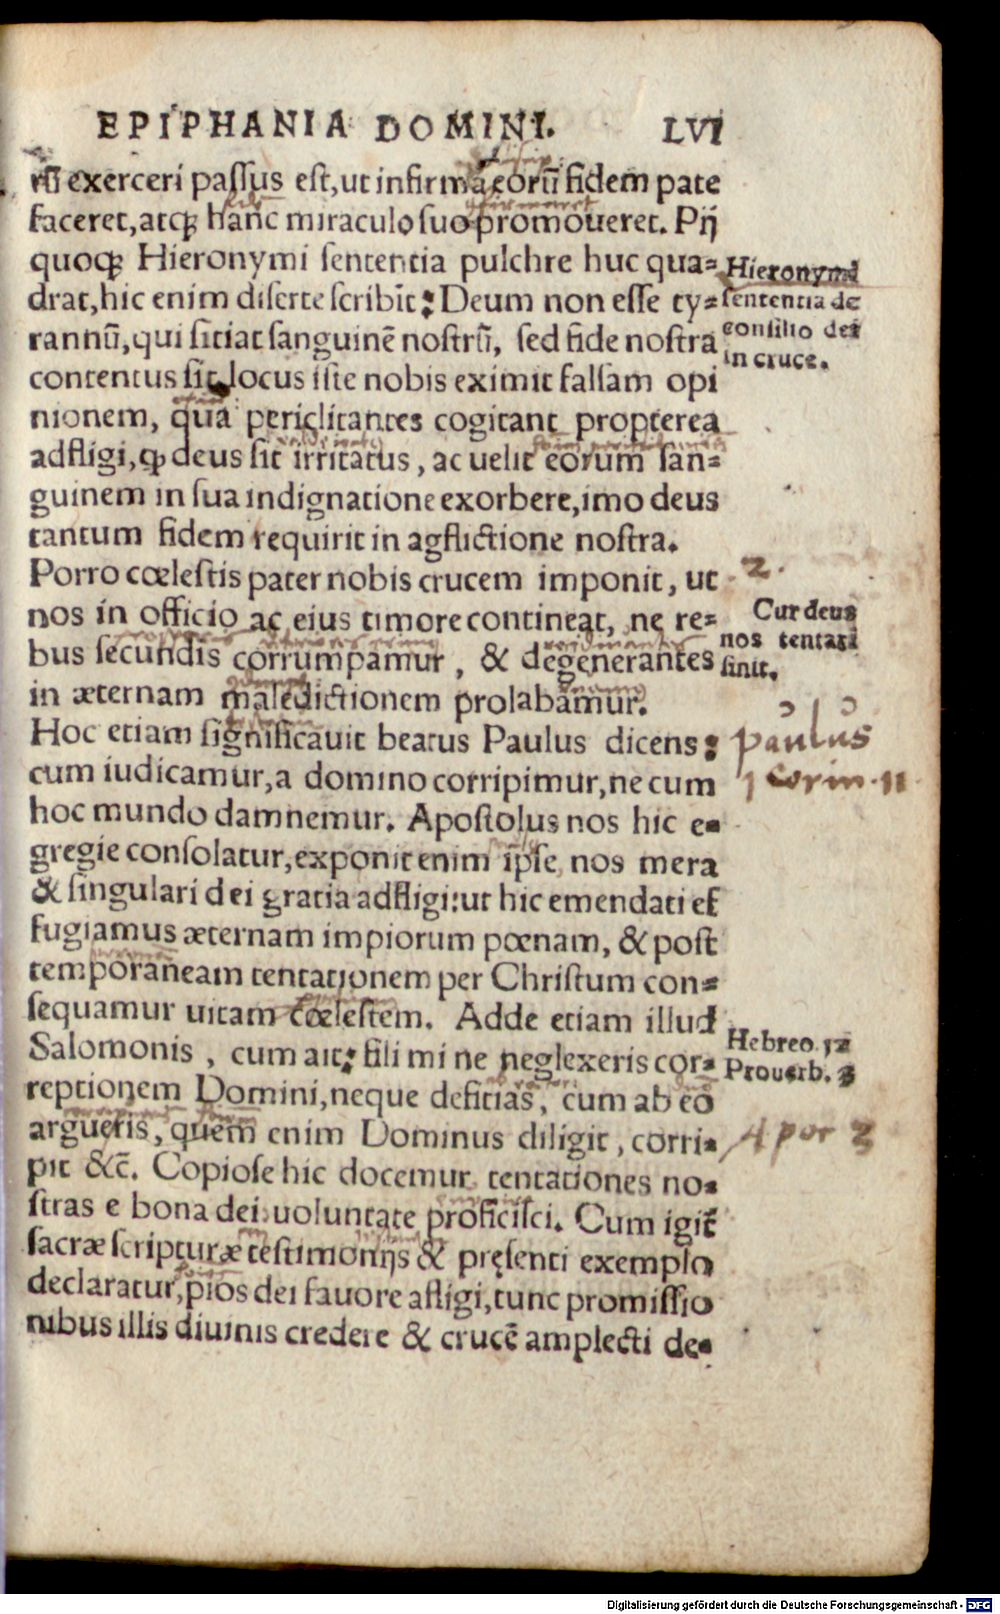 EPIPHANIA DOMINI. LVI
rũ exerceri passus est, ut infirmã eorũ fidem pate
faceret, atqꝫ hanc miraculo suo promoueret. Pij
quoqꝫ Hieronymi sententia pulchre huc qua⸗
drat, hic enim diserte scribit: Deum non esse ty⸗
rannũ, qui sitiat sanguinẽ nostrũ, sed fide nostra
contentus sit, locus iste nobis eximit falsam opi
nionem, qua periclitantes cogitant propterea
adfligi, ꝙ deus sit irritatus, ac uelit eorum san⸗
guinem in sua indignatione exorbere, imo deus
tantum fidem requirit in agflictione nostra.
Porro cœlestis pater nobis crucem imponit, ut
nos in officio ac eius timore contineat, ne re⸗
bus secundis corrumpamur, & degenerantes
in æternam maledictionem prolabamur.
Hoc etiam significauit beatus Paulus dicens:
cum iudicamur, a domino corripimur, ne cum
hoc mundo damnemur. Apostolus nos hic e⸗
gregie consolatur, exponit enim ipse, nos mera
& singulari dei gratia adfligi: ut hic emendati ef
fugiamus æternam impiorum pœnam, & post
temporaneam tentationem per Christum con⸗
sequamur uitam cœlestem. Adde etiam illud
Salomonis, cum ait: fili mi ne neglexeris cor⸗
reptionem Domini, neque deficias, cum ab eo
argueris, quem enim Dominus diligit, corri⸗
pit &c̃. Copiose hic docemur tentationes no⸗
stras e bona dei uoluntate proficisci. Cum igit̃
sacræ scripturæ testimonijs & pręsenti exemplo
declaratur, pios dei fauore afligi, tunc promissio
nibus illis diuinis credere & crucẽ amplecti de⸗
Hieronymi
sententia de
consilio dei
in cruce.
2.
Cur deus
nos tentari
sinit.
paulus
1 Corin. 11
Hebreo. 12
Prouerb. 3
Apoc 3
Digitalisierung gefördert durch die Deutsche Forschungsgemeinschaft - DFG